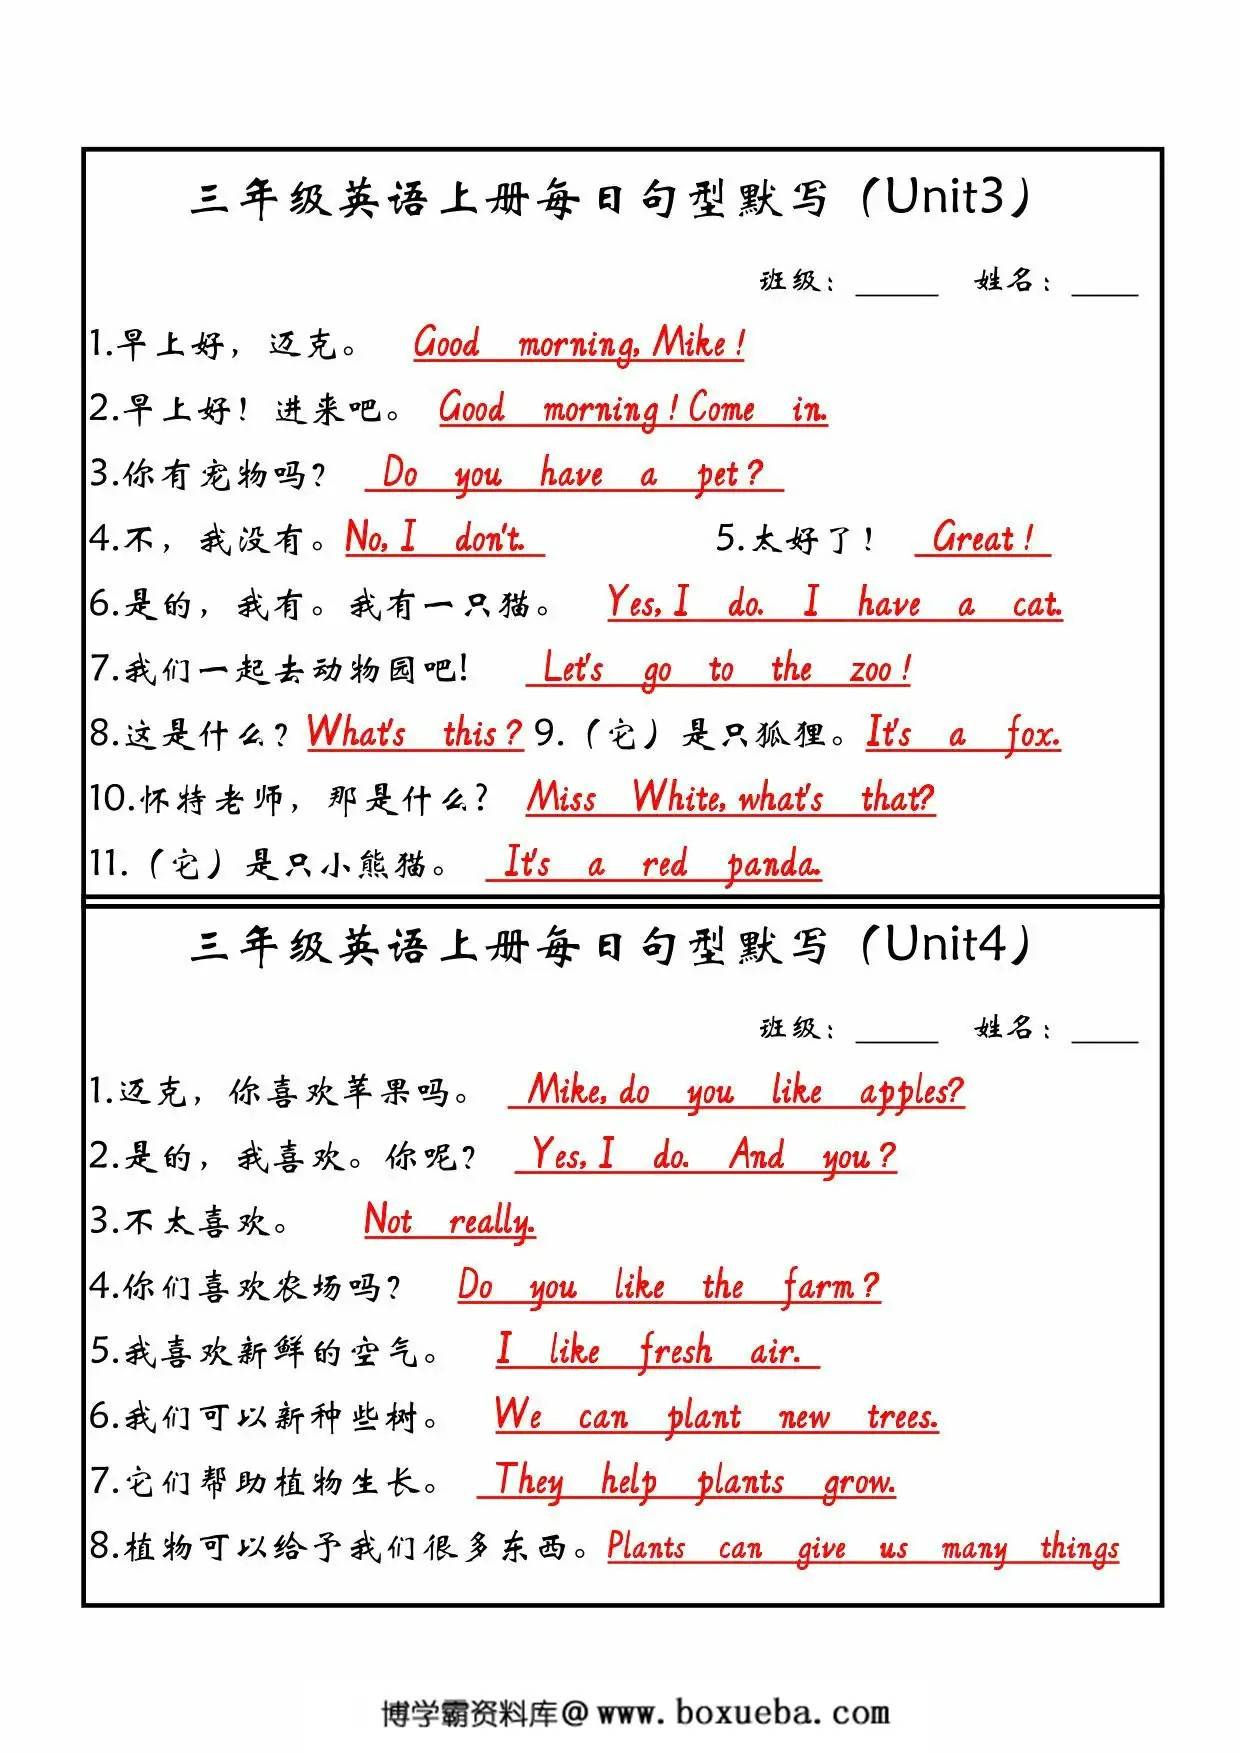 三年级英语上册每日句型默写（Unit3）
班级：_____ 姓名：____
1.早上好，迈克。 Good morning, Mike!
2.早上好！进来吧。 Good morning! Come in.
3.你有宠物吗？ Do you have a pet?
4.不，我没有。No, I don't. 5.太好了！ Great!
6.是的，我有。我有一只猫。 Yes, I do. I have a cat.
7.我们一起去动物园吧! Let's go to the zoo!
8.这是什么？What's this? 9.（它）是只狐狸。It's a fox.
10.怀特老师，那是什么? Miss White, what's that?
11.（它）是只小熊猫。 It's a red panda.
三年级英语上册每日句型默写（Unit4）
班级：_____ 姓名：____
1.迈克，你喜欢苹果吗。 Mike, do you like apples?
2.是的，我喜欢。你呢？ Yes, I do. And you?
3.不太喜欢。 Not really.
4.你们喜欢农场吗？ Do you like the farm?
5.我喜欢新鲜的空气。 I like fresh air.
6.我们可以新种些树。 We can plant new trees.
7.它们帮助植物生长。 They help plants grow.
8.植物可以给予我们很多东西。Plants can give us many things
博学霸资料库@www.boxueba.com